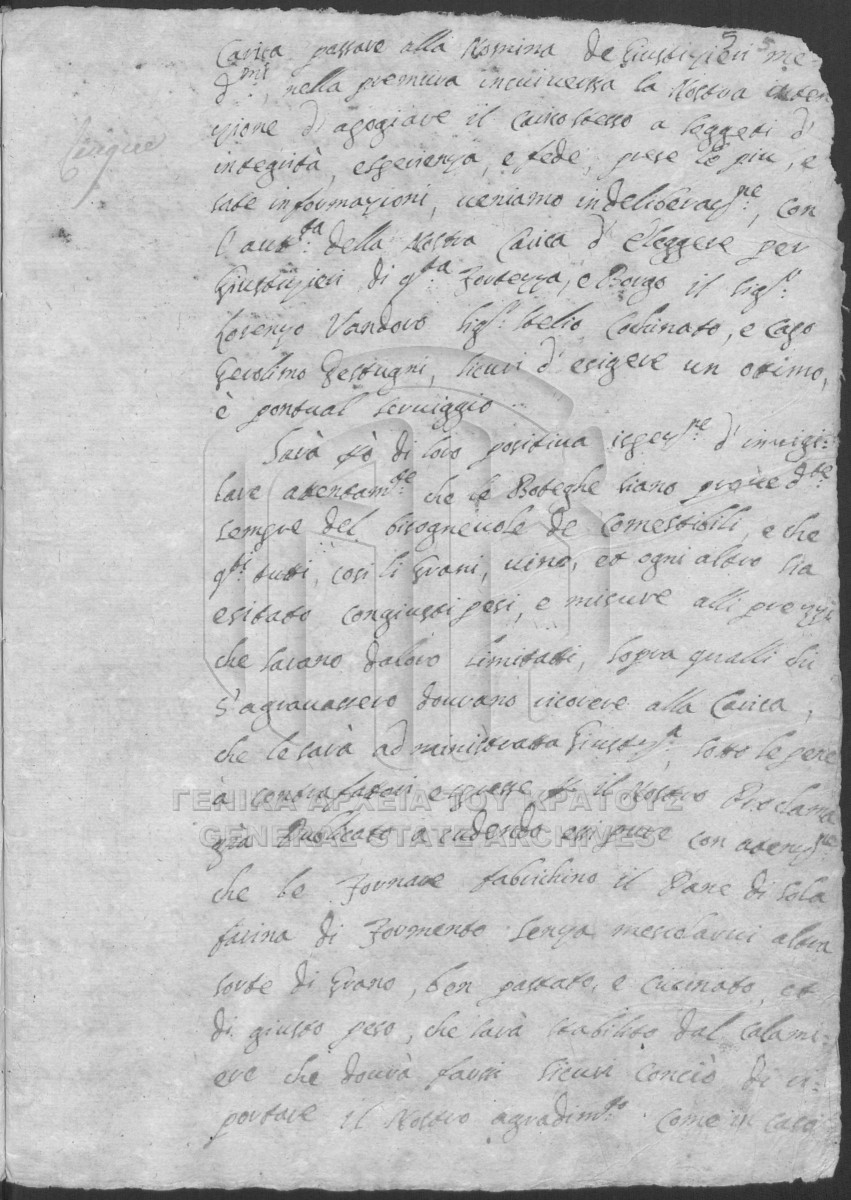 5
Carica passare alla Nomina de Giustizieri me-
d.mi, nella premura incuiversa la Nostra inten
zione d'apogiare il carico stesso a soggeti d'
integrità, esperienza, e fede, prese le piu, e
sate informazioni, veniamo indeliberaz.ne, con
l'aut.ta della Nostra Carica d'eleggere per
Giustizieri di q.ta Fortezza, e Borgo il Sig.r
Lorenzo Vandoro Sig.r Stelio Cochinato, e Capo
Gerolimo, sicuri d'esigere un otimo,
è pontual serviggio
Sarà pò di loro positiva ispez.ne d'invigi-
lare atentam.te che le Boteghe siano provedute
sempre del bisognevole de Comestibili, e che
q.ti tutti, cosi li Grani, vino, et ogni altro sia
esitato congiusti pesi, e misure alli prezzi
che sarano daloro limitati, sopra qualli chi
s'agravassero dovrano ricorere alla Carica,
che le sarà administrata Giustiz.a, sotto le pene
à contrafatori espresse
il Nostro Proclama
già Publicato acudendo essi pure con atenz.ne
che le Fornare fabrichino il Pane di sola
farina di Formento senza mescolarvi altra
sorte di Grano, ben pastato, e cucinato, et
di giusto peso, che sarà stabilito dal calami-
ere che dovrà farsi sicuri conciò di ri-
portare il Nostro agradim.to Come in caso
ΓΕΝΙΚΑ ΑΡΧΕΙΑ ΤΟΥ ΚΡΑΤΟΥΣ
GENERAL STATE ARCHIVES